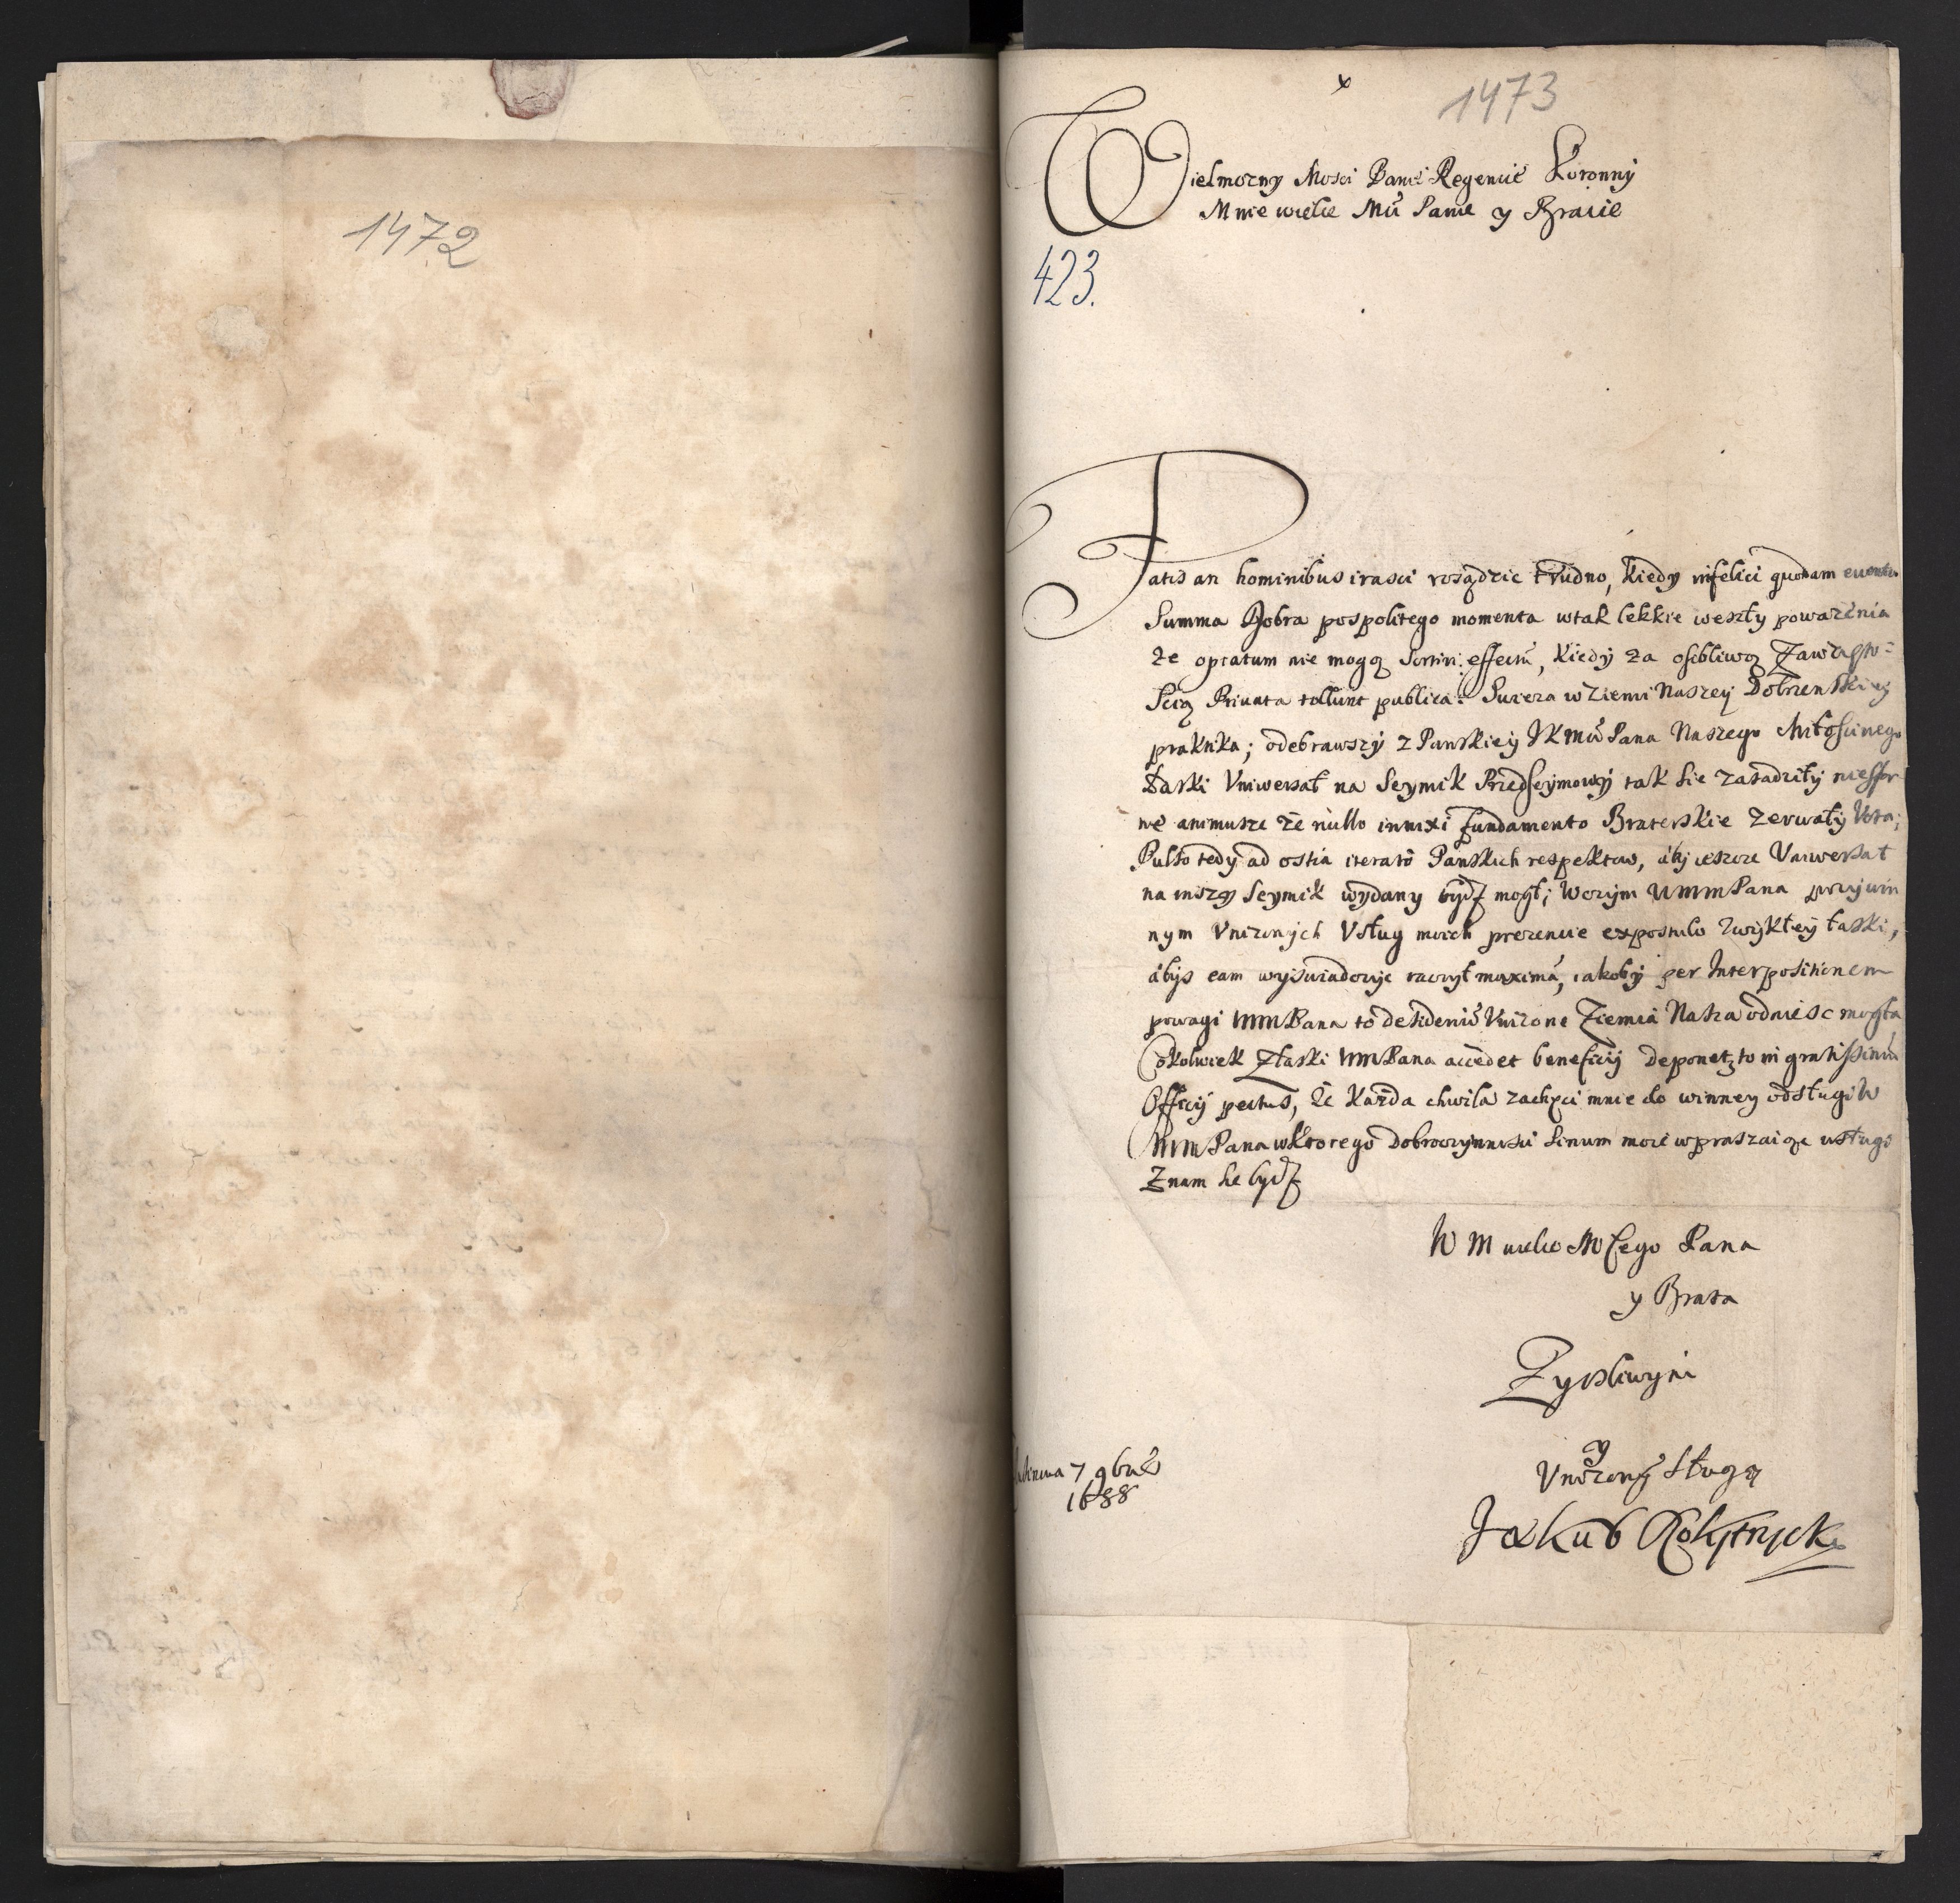 1472
1473
Wielmozny Mosci Panie Regencie Koronny
Mnie wielce Mű Panie y Bracie
423.
Fatis an hominibus irasci rosądzic trudno, kiedy infelici quodam euentu
Summa Dobra pospolitego momenta wtak lekkie weszły powazenia
ze optatum nie mogą sortiri effectũ, kiedy za osobliwą Zawzięto-
scią Priuata tollunt publica. Swieza w Ziemi Naszey Dobrzenskiey
praktika; odebrawszy z Panskiey JKMũ Pana Naszego Miłosciwego
Łaski Vniwersał na Seymik Przedseymowy tak sie zasadziły niesfor
ne animusze ze nullo innixi fundamento Braterskie zerwały Vota;
Pulso tedy ad ostia iterato Panskich respektow, aby ieszcze Vniwersał
na inszy Seymik wydany bydz mogł; Wczym WMMPana
nym Vnizonych Vsług moich prezencie expostulo zwykłey łaski,
abys eam wyswiadczyc raczył maximã, iakoby per Interpositionem
powagi WMMPana to desideriũ Vnizone Ziemia Nasza odniesc mogła
Cokolwiek Złaski WMMPana accedet beneficij deponet to in gratissimũ
Officij pectus, ze kazda chwila zachęci mnie do winney odsługi W
WMMPana wktorego dobroczynnosci sinum moie wpraszaiąc usługi
Znam se bydz
W M wielce Mſcego Pana
y Brata
Zyczliwym
y
Vnizonym Sługą
7 9bris
1688
Jakub Rokitnicki